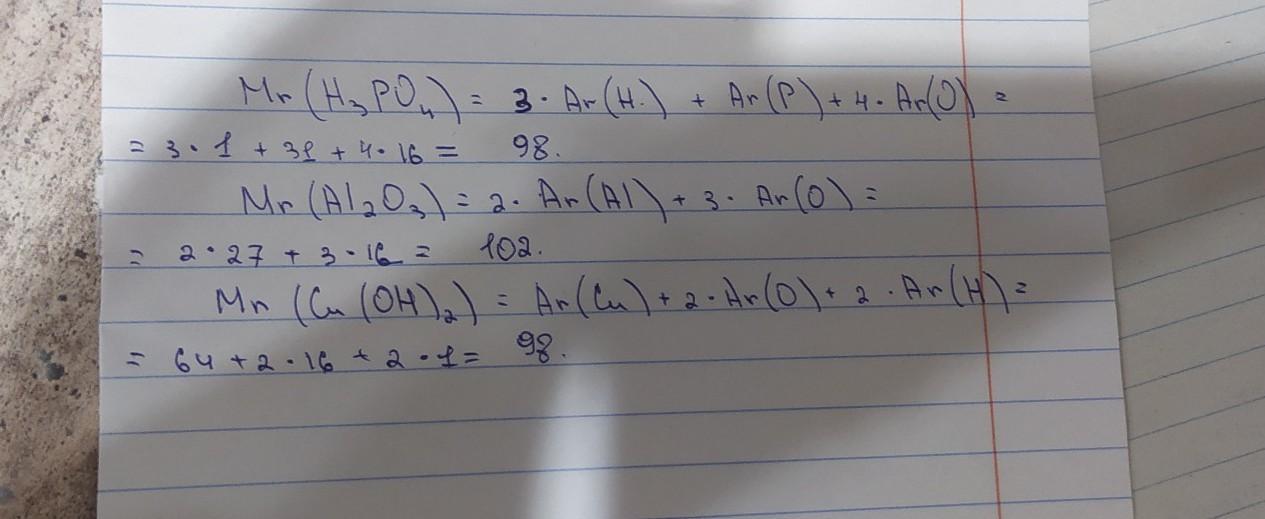 Mr (H₃PO₄) = 3 · Ar(H) + Ar(P) + 4 · Ar(O) =
= 3 · 1 + 31 + 4 · 16 = 98.
Mr (Al₂O₃) = 2 · Ar(Al) + 3 · Ar(O) =
= 2 · 27 + 3 · 16 = 102.
Mr (Cu(OH)₂) = Ar(Cu) + 2 · Ar(O) + 2 · Ar(H) =
= 64 + 2 · 16 + 2 · 1 = 98.